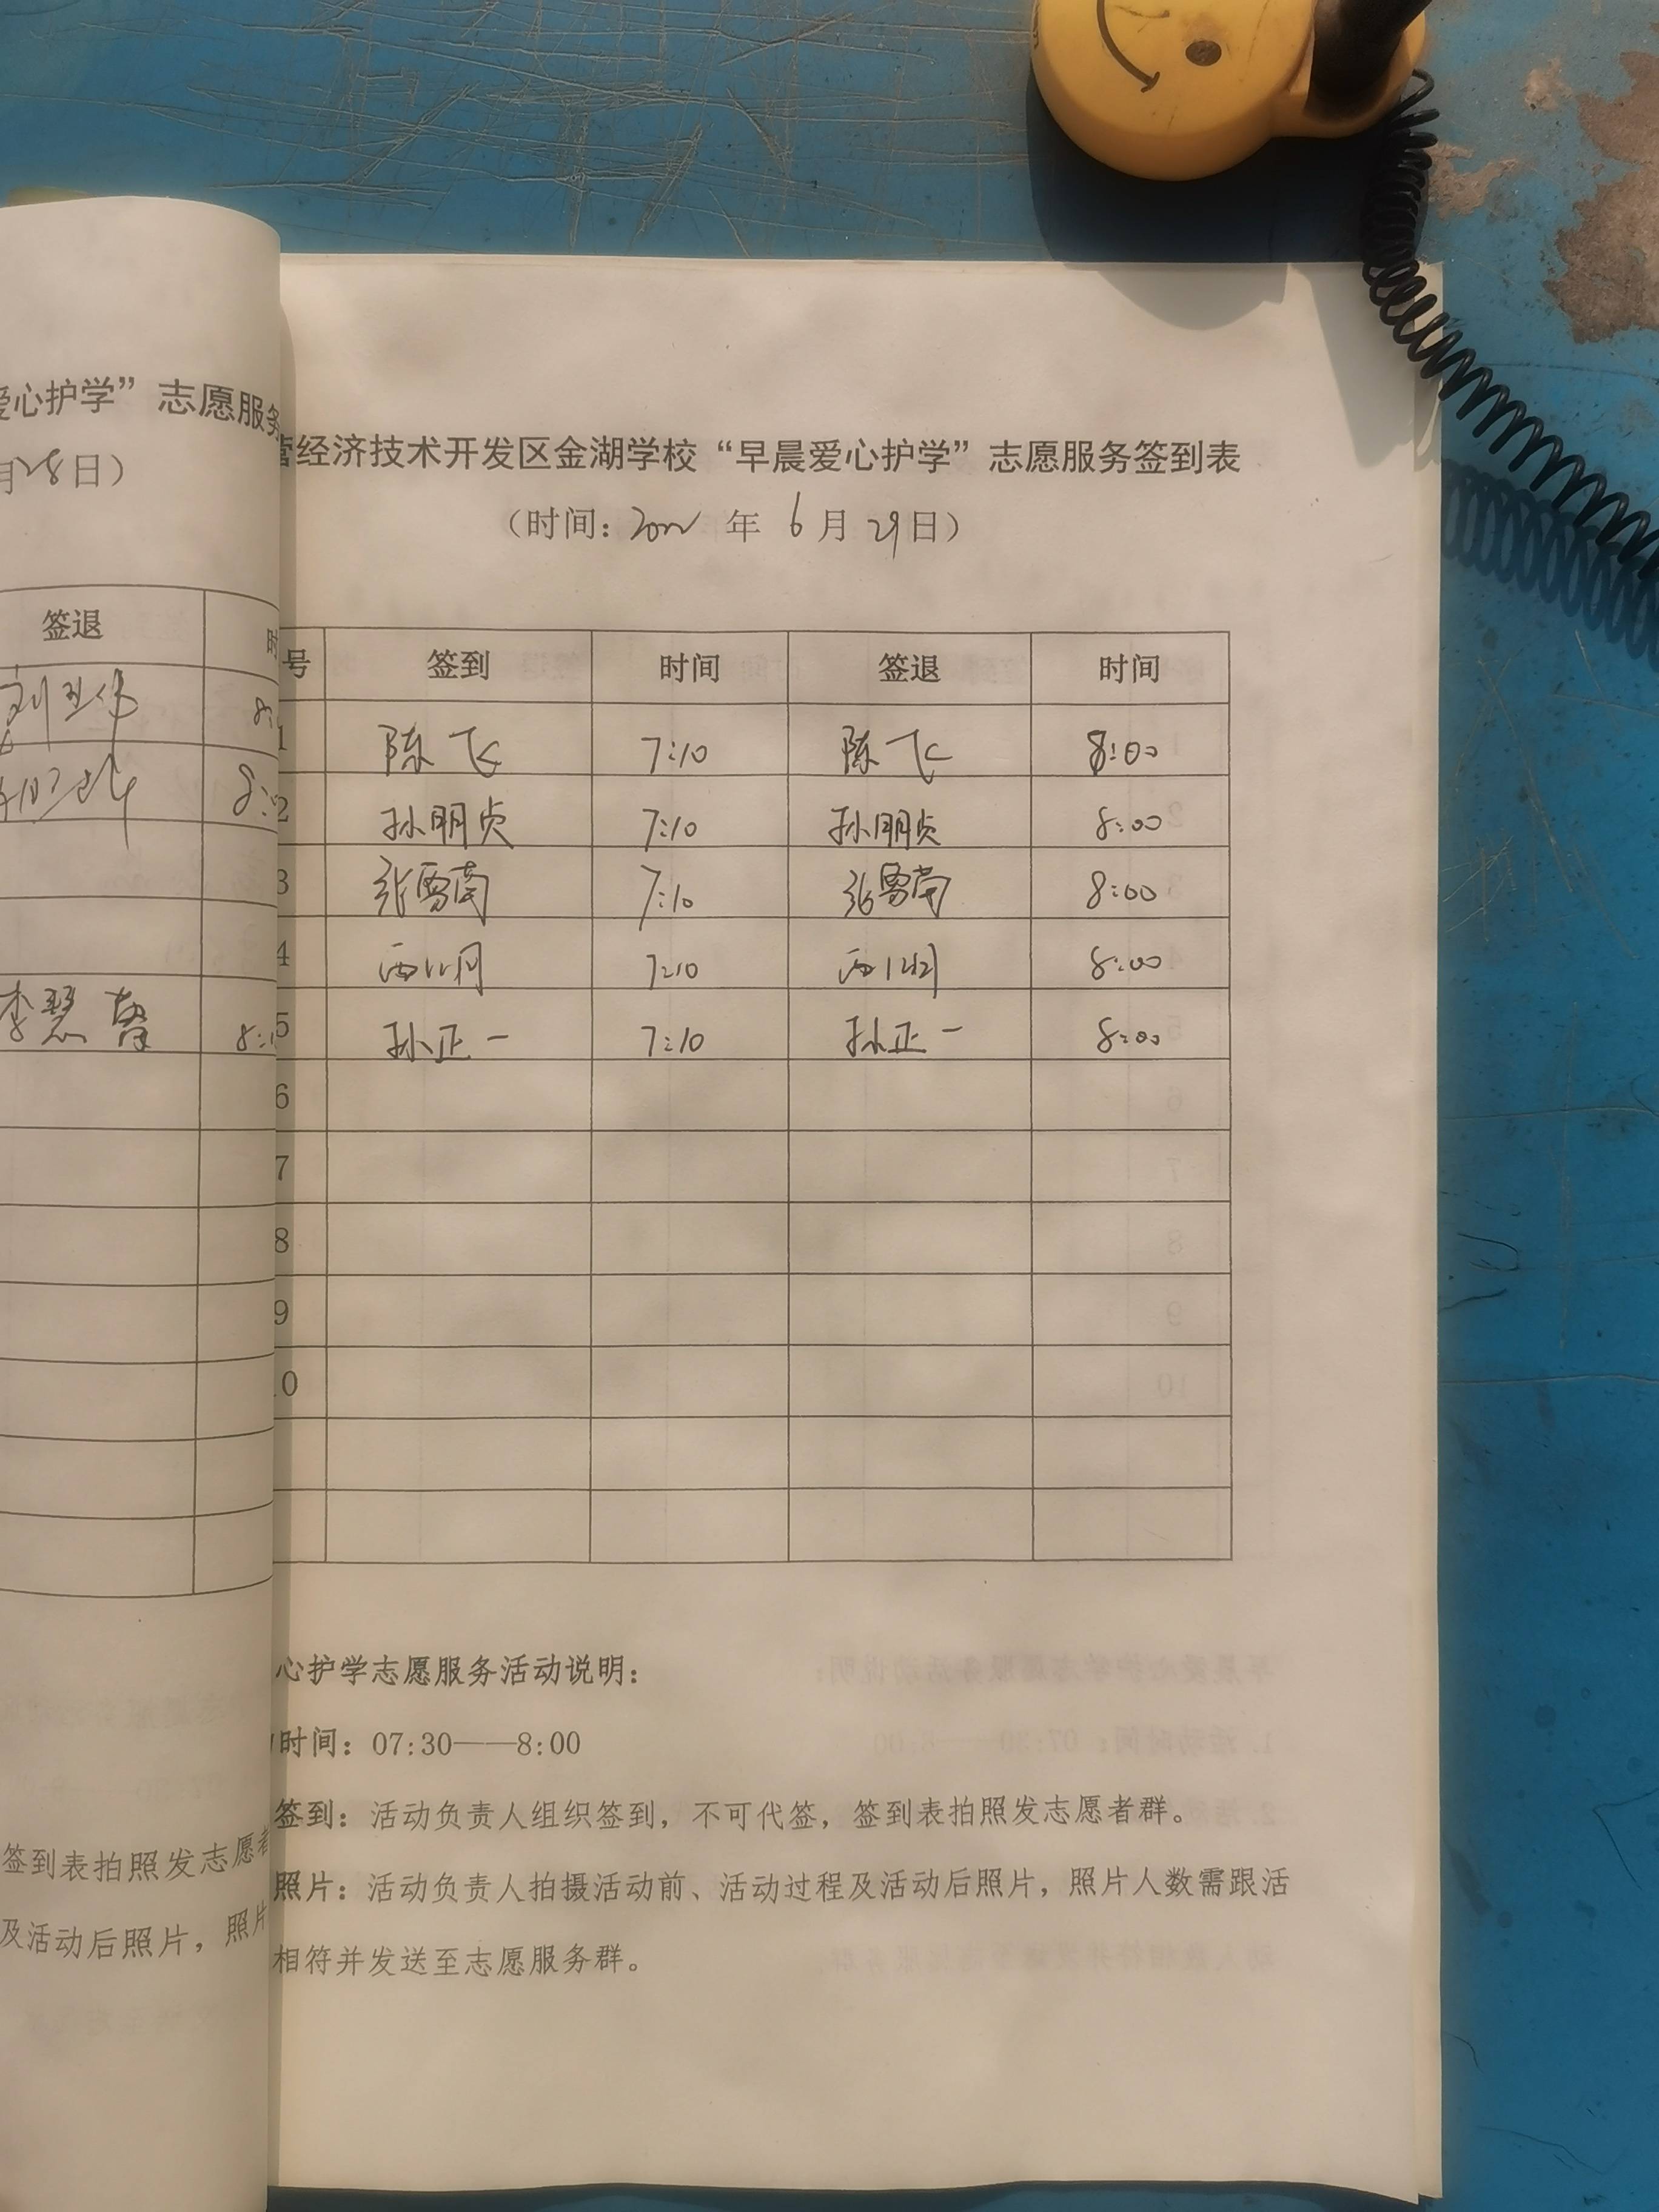 爱心护学”志愿服务
月28日）
签退 时
刘
8:
8:
李慧馨 8:
营经济技术开发区金湖学校“早晨爱心护学”志愿服务签到表
（时间：2022 年 6 月 29日）
号 签到 时间 签退 时间
1 陈飞 7:10 陈飞 8:00
2 孙朋贞 7:10 孙朋贞 8:00
3 张雪南 7:10 张雪南 8:00
4 7:10 8:00
5 孙正一 7:10 孙正一 8:00
6
7
8
9
10
心护学志愿服务活动说明：
时间：07:30——8:00
签到：活动负责人组织签到，不可代签，签到表拍照发志愿者群。
照片：活动负责人拍摄活动前、活动过程及活动后照片，照片人数需跟活
相符并发送至志愿服务群。
签到表拍照发志愿者
及活动后照片，照片